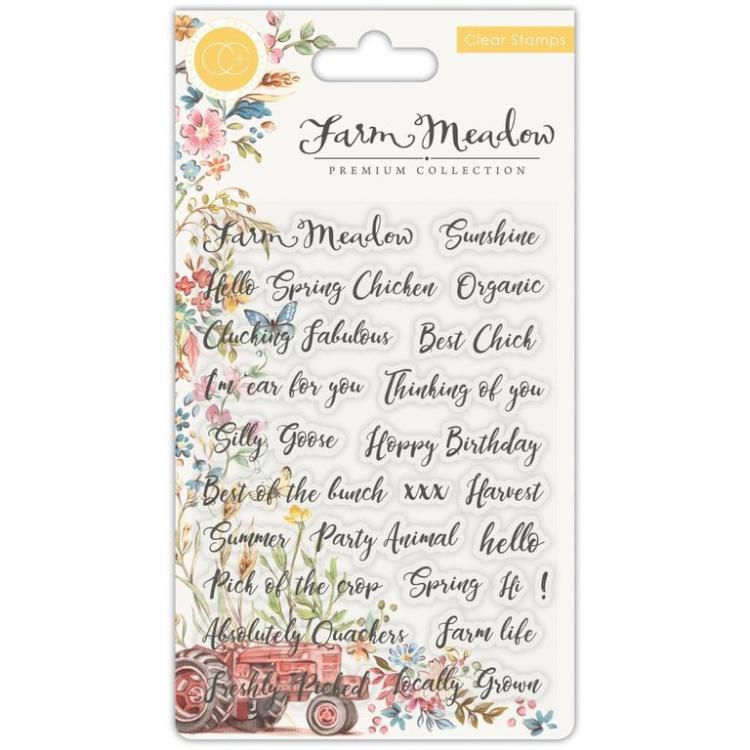 CC
Clear Stamps
Farm Meadow
PREMIUM COLLECTION
Farm Meadow Sunshine
Hello Spring Chicken Organic
Clucking Fabulous Best Chick
I'm ear for you Thinking of you
Silly Goose Hoppy Birthday
Best of the bunch xxx Harvest
Summer Party Animal hello
Pick of the crop Spring Hi !
Absolutely Quackers Farm life
Freshly Picked Locally Grown